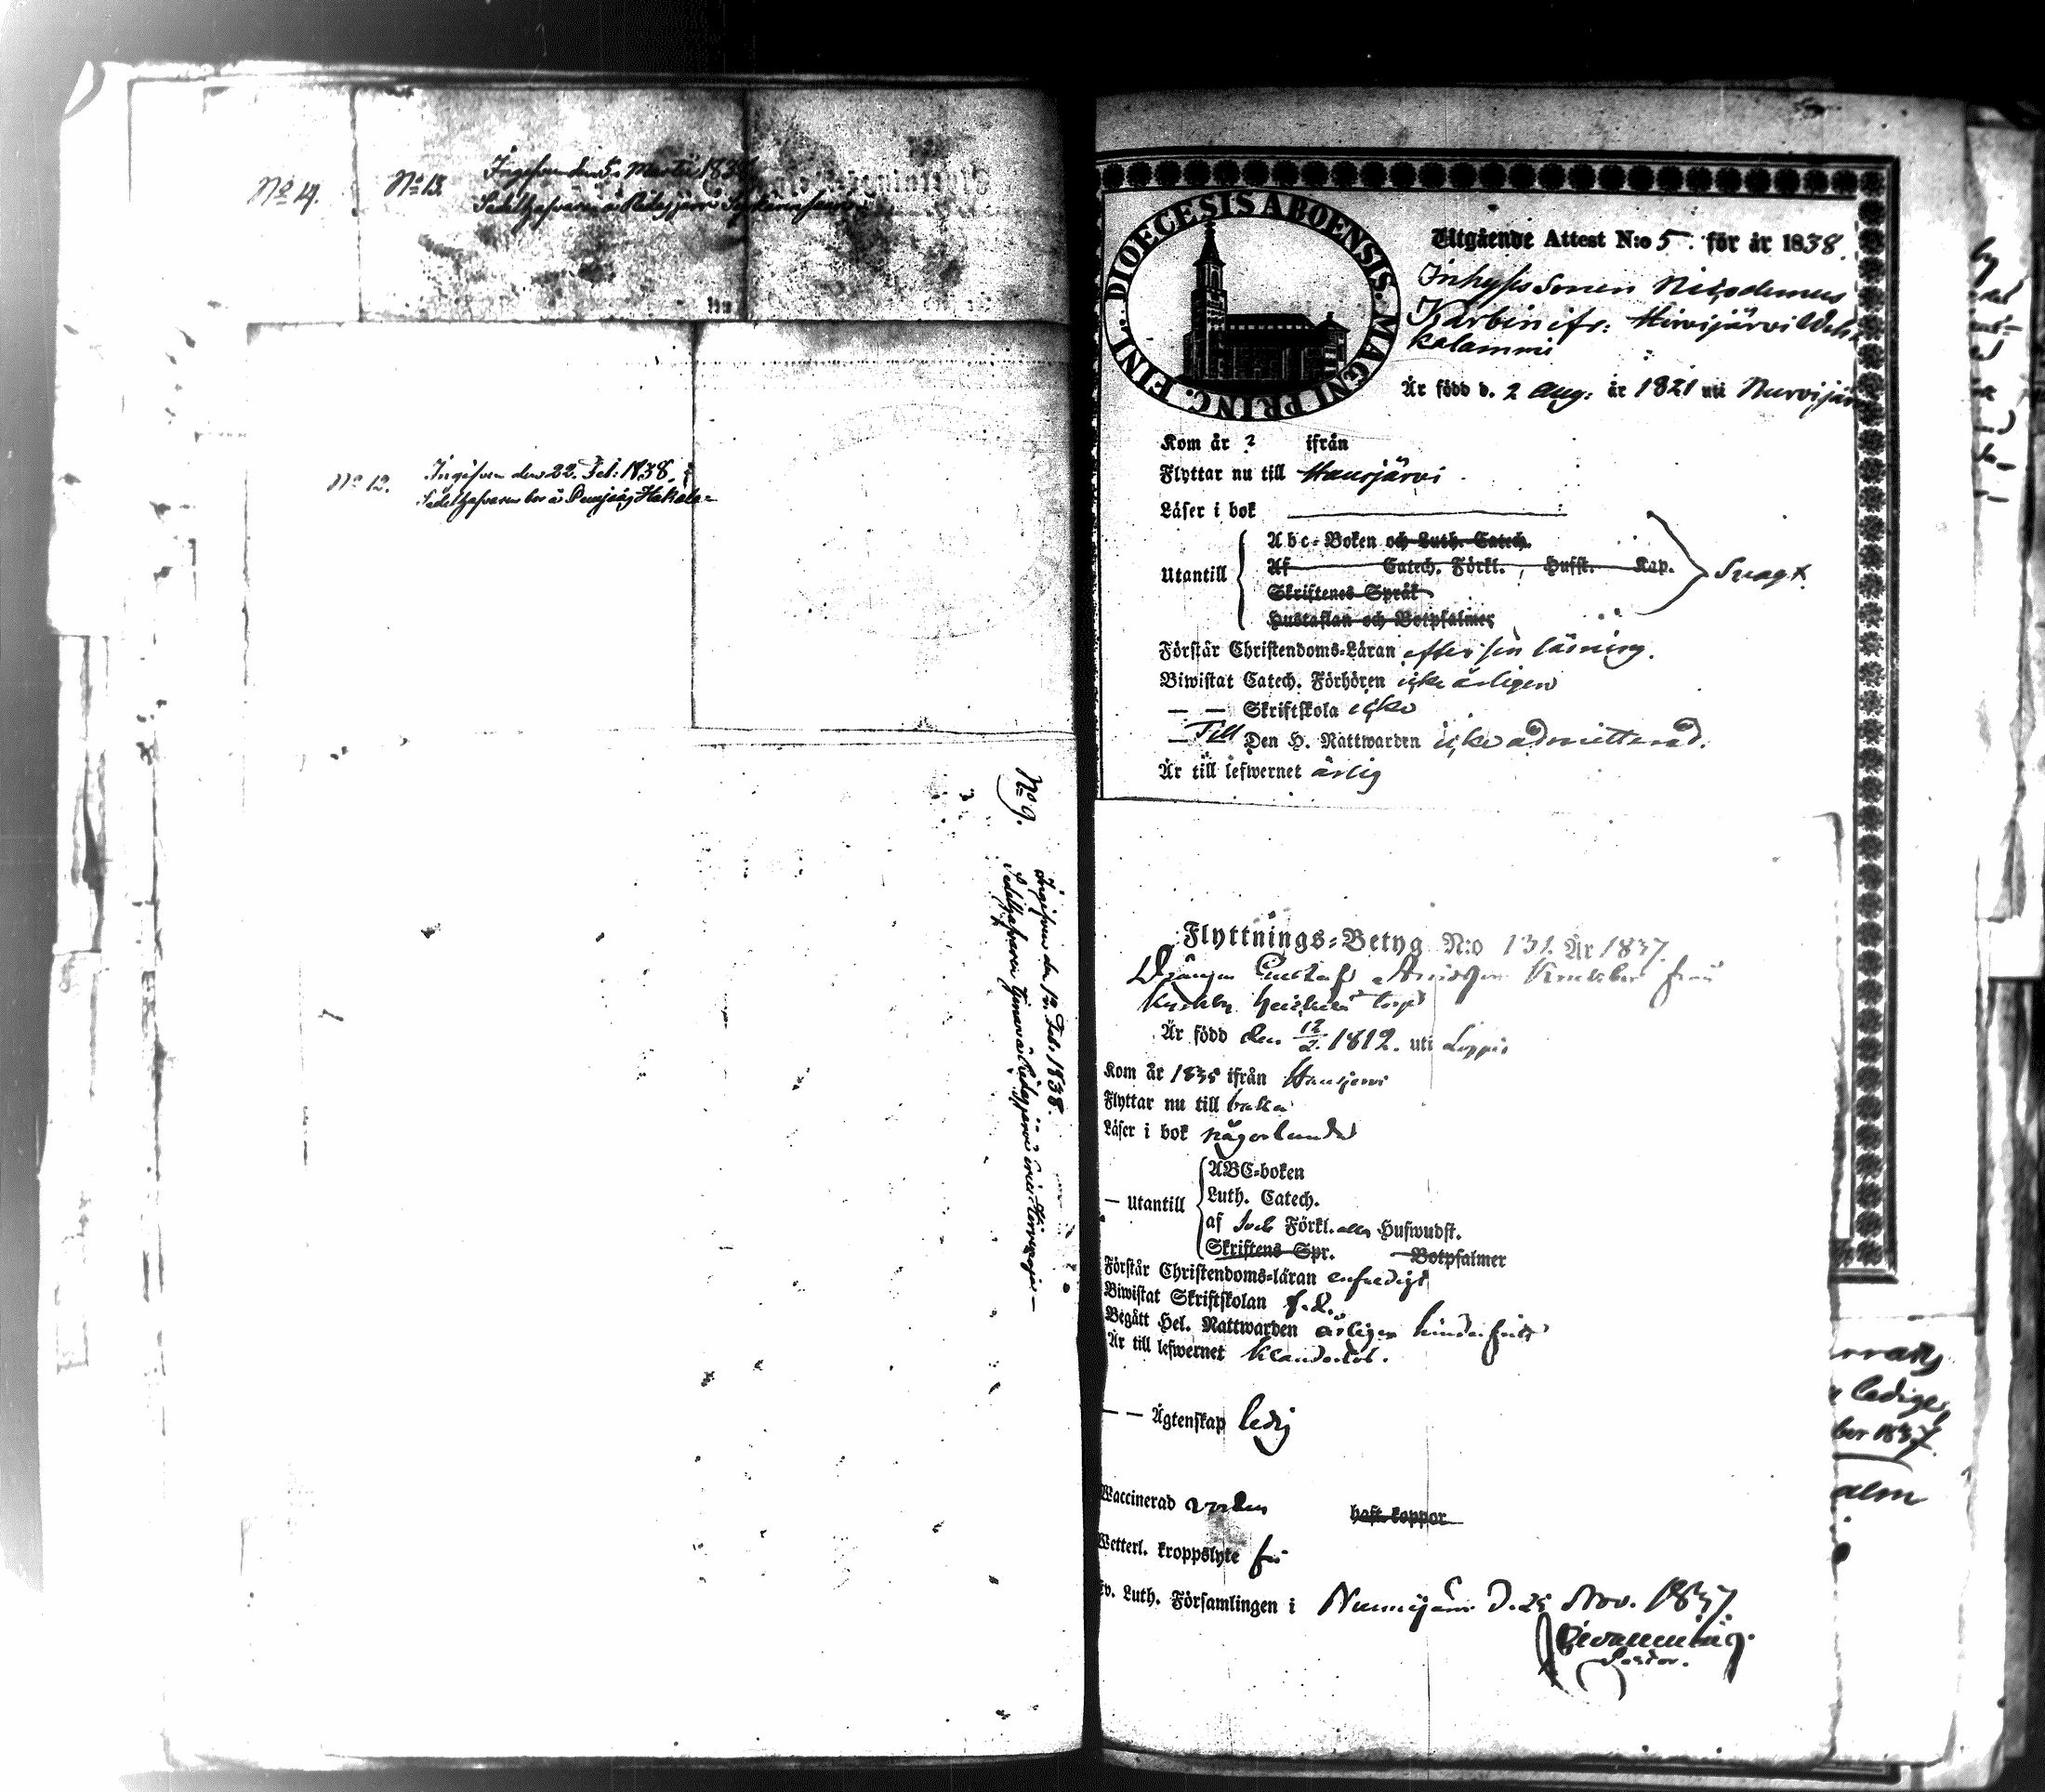 No 14.
No 13.
Ingifven den 5. Martii 1838
No 12.
Ingifven den 22. Feb: 1838.
Sedelhafvaren bor å Hakala
No 9.
Ingifven den 12. Feb. 1838.
Sedelhafvaren tjenar å
DIOECESIS ABOENSIS. MAGNI PRINC. FINL.
Utgående Attest N:o 5. för år 1838.
Inhyses Sonen Nicodemus
ifr: Hirvijärvi
kalammi
Är född d. 2 Aug: år 1821 uti Nurvijärvi
Kom år ? ifrån
Flyttar nu till Hausjärvi
Läser i bok
Utantill
Abc-Boken och Luth. Catech.
Af Catech. Förkl., Hufst. Kap.
Skriftenes Språk
Hustaflan och Botpsalmer
Svagt
Förstår Christendoms-Läran efter sin läsning.
Biwistat Catech. Förhören icke årligen
— — Skriftskola icke
— Till Den H. Nattwarden icke admitterad.
Är till lefwernet ärlig
Flyttnings-Betyg N:o 131. År 1837.
Drängen Gustaf från
torp
Är född den 12/2. 1812. uti Loppis
Kom år 1835 ifrån Hausjervi
Flyttar nu till baka
Läser i bok någorlunda
— Utantill
ABC-boken
Luth. Catech.
af Sveb Förkl. alla Hufwudst.
Skriftens Spr. Botpsalmer
Förstår Christendoms-läran enfaldigt
Biwistat Skriftskolan
Begått Hel. Nattwarden årligen hinderfritt
Är till lefwernet klanderlös.
— — Ägtenskap ledig
Waccinerad worden haft koppor
Wetterl. kroppslyte fri
Ev. Luth. Församlingen i Nurmijärvi D. 25 Nov. 1837.
Pastor.
ledige,
ber 1837
alm